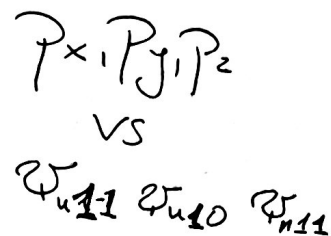 Px, Py, Pz
vs
Ψn1-1 Ψn10 Ψn11